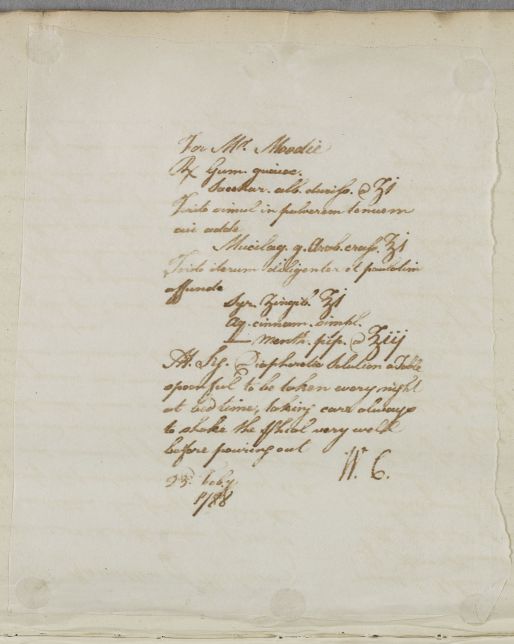 For Mr. Moodie
Rx Gum. guaiac.
Sacchar. alb. duriss. a ʒi
Trito simul in pulverem tenuem
cui adde
Mucilag. g. Arab. crass. ʒi
Trito iterum diligenter et paulatim
affunde
Syr. Zingib. ʒi
Aq. cinnam. simpl.
— menth. pip. a ʒiij
M. Sig. Diaphoretic Solution a Table
spoonful to be taken every night
at bed time, taking care always
to shake the Phial very well
before pouring out
W. C.
23d. Feby.
1788